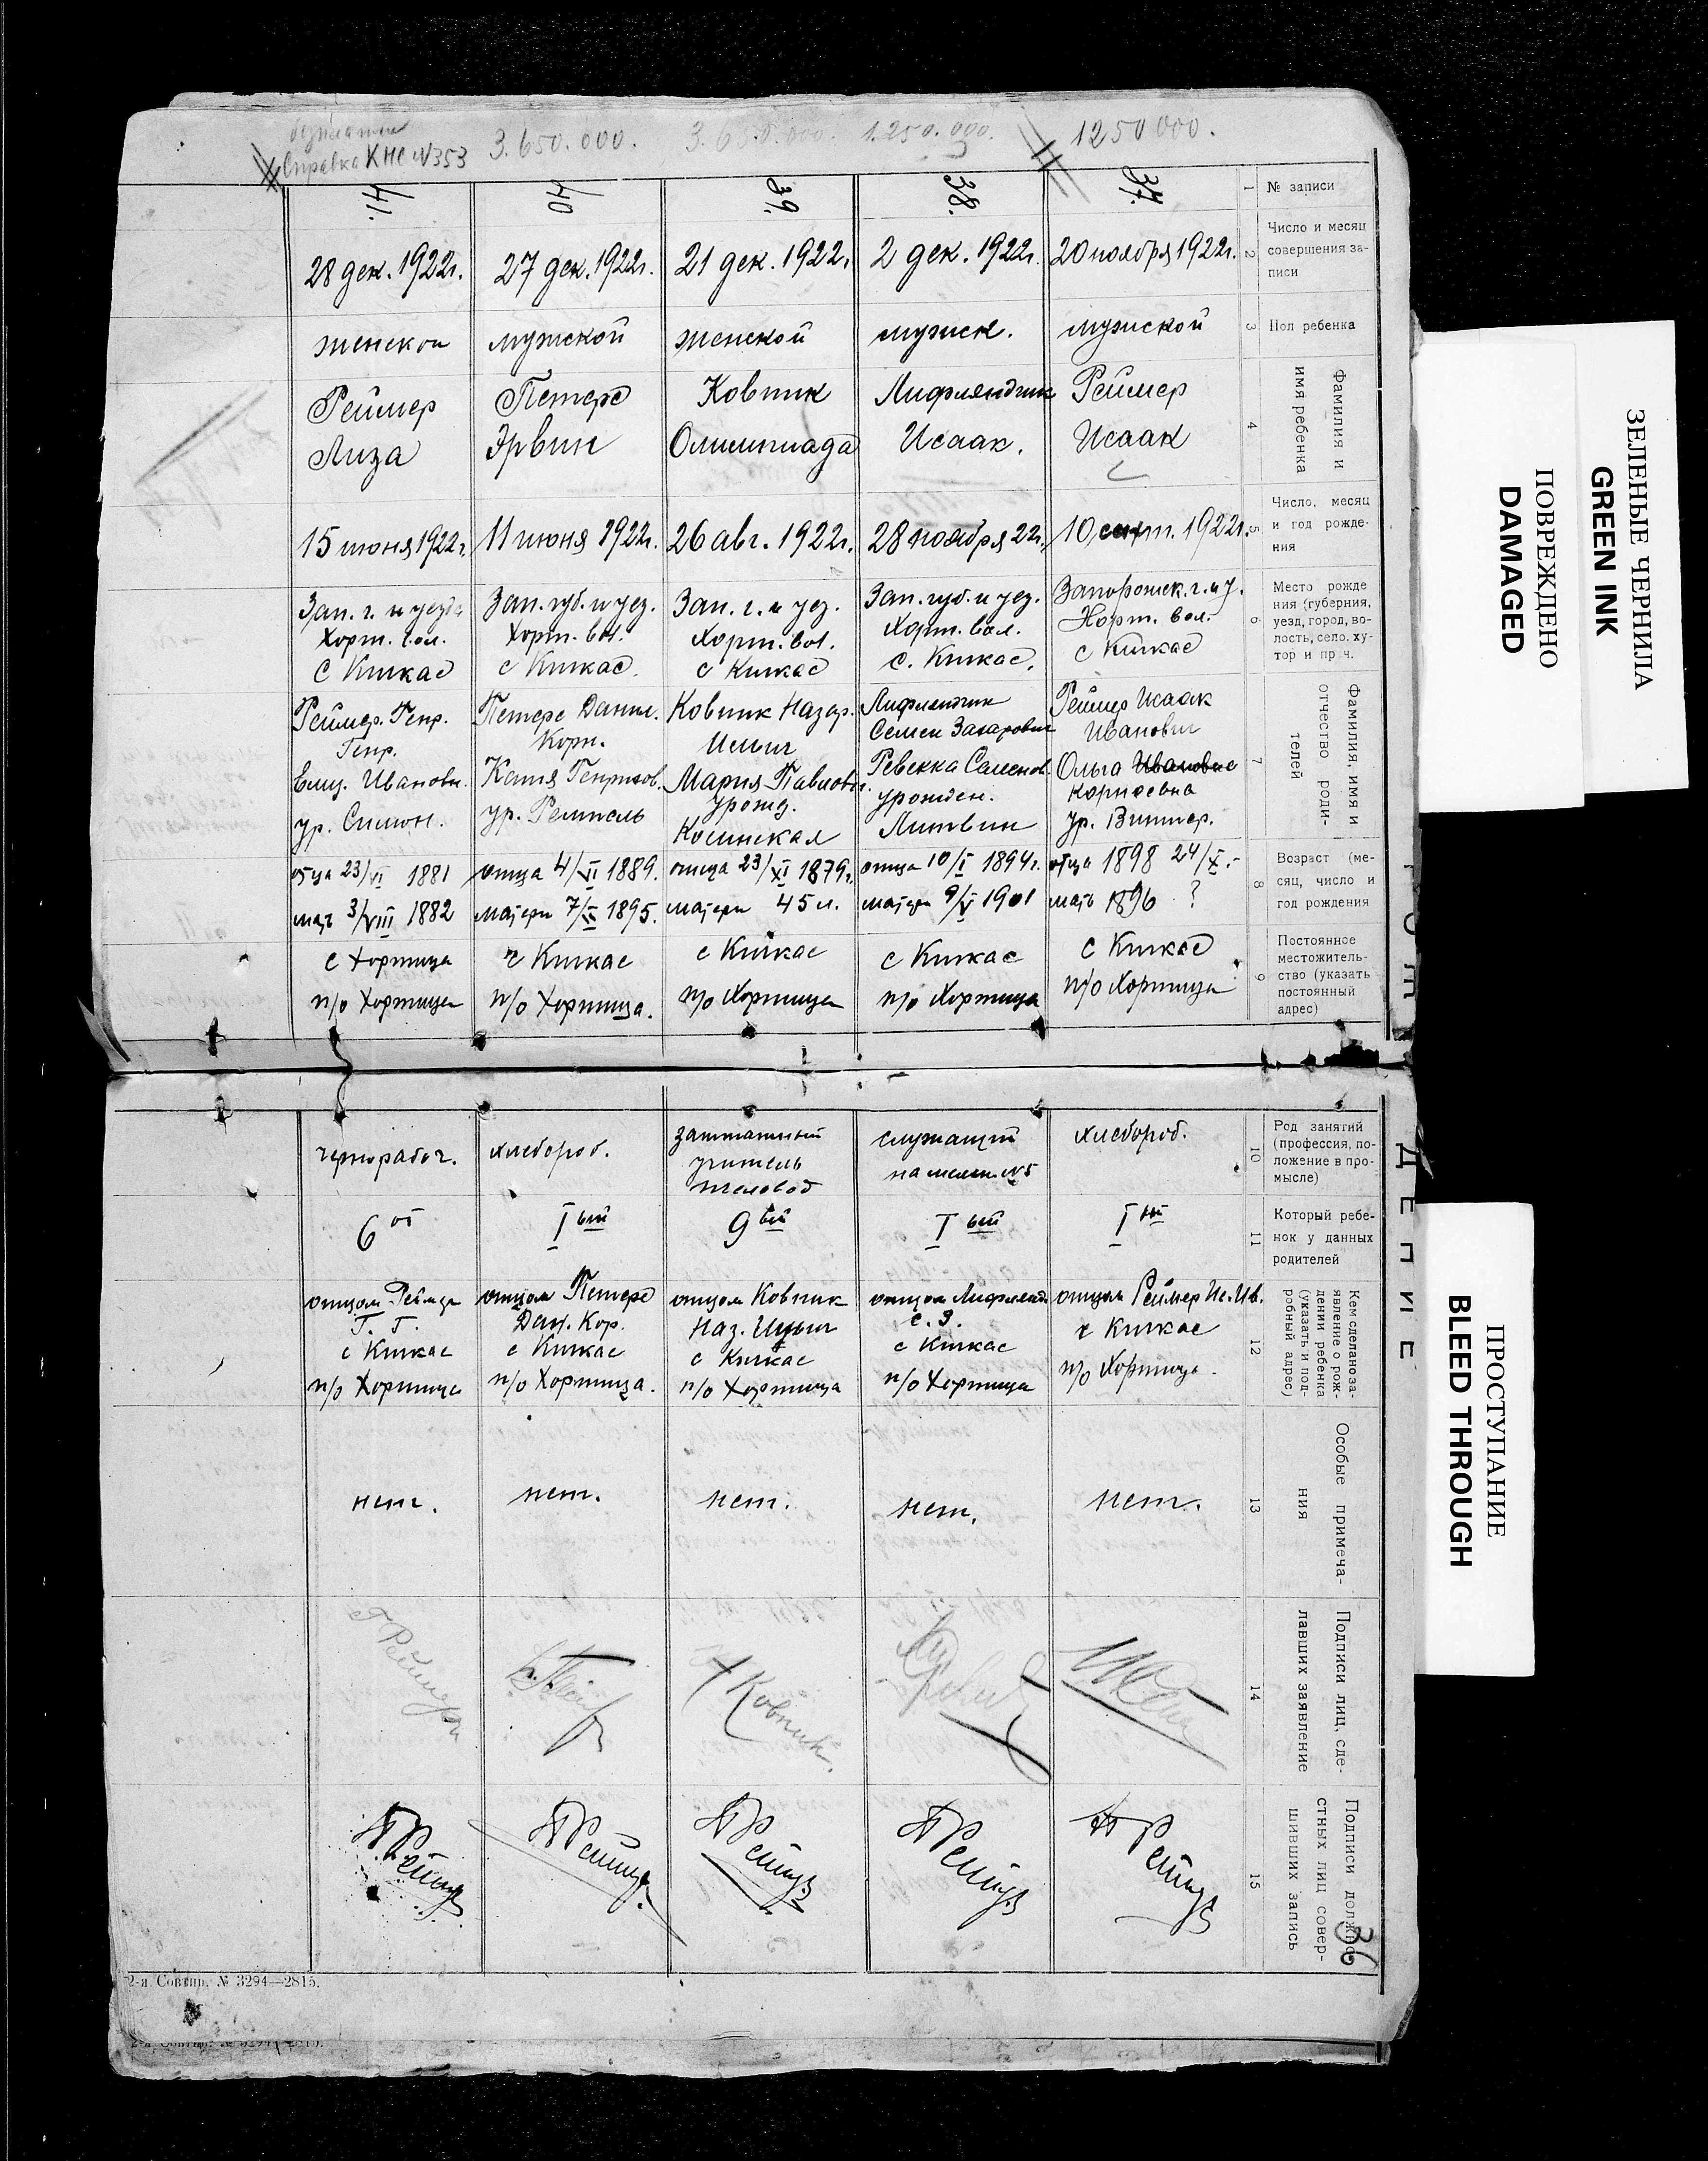 безплатно
Справка КНС №353
3.650.000.
3.650.000.
1.250.000.
1250000.
1
№ записи
37.
38.
39.
40
41.
2
Число и месяц
совершения за-
писи
20 ноября 1922г.
2 дек. 1922г.
21 дек. 1922г.
27 дек. 1922г.
28 дек. 1922г.
3
Пол ребенка
мужской
мужск.
женской
мужской
женской
4
Фамилия и
имя ребенка
Реймер
Исаак
Лифляндчик
Исаак.
Ковпик
Олимпиада
Петерс
Эрвин
Реймер
Лиза
5
Число, месяц
и год рожде-
ния
10 сент. 1922г.
28 ноября 22г.
26 авг. 1922г.
11 июня 1922г.
15 июня 1922г.
6
Место рожде
ния (губерния,
уезд, город, во-
лость, село, ху-
тор и проч.
Запорожск. г. и у.
Хорт. вол.
с Кичкас
Зап. губ. и уез.
Хорт. вол.
с. Кичкас.
Зап. г. и уез.
Хорт. вол.
с Кичкас
Зап. губ. и уез.
Хорт. вол.
с Кичкас.
Зап. г. и уезда
Хорт. вол.
с Кичкас
7
Фамилия, имя и
отчество роди-
телей
Реймер Исаак
Иванович
Ольга Ивановна
Корнеевна
ур. Винтер.
Лифляндчик
Семен Захарович
Ревекка Саменов.
урожден.
Литвин
Ковпик Назар.
Ильич
Мария Павловн.
урожд.
Косинская
Петерс Данил.
Корн.
Катя Генрихов.
ур. Ремпель
Реймер. Генр.
Генр.
Елиз. Ивановн.
ур. Симон.
8
Возраст (ме-
сяц, число и
год рождения
отца 1898 24/X.-
мать 1896 ?
отца 10/I 1894г.
матери 9/V 1901
отца 23/XI 1879г.
матери 45 л.
отца 4/VI 1889.
матери 7/IX 1895.
отца 23/VI 1881
мат 3/VIII 1882
9
Постоянное
местожитель-
ство (указать
постоянный
адрес)
с Кичкас
п/о Хортица
с Кичкас
п/о Хортица
с Кичкас
п/о Хортица
с Кичкас
п/о Хортица.
с Хортица
п/о Хортица
10
Род занятий
(профессия, по-
ложение в про-
мысле)
хлебороб.
служащий
на мельн №5
заштатный
учитель
пчеловод
хлебороб.
чернорабоч.
11
Который ребе-
нок у данных
родителей
I ый
I ый
9 ый
I ый
6 ой
12
Кем сделано за-
явление о рож-
дении ребенка
(указать и под-
робный адрес)
отцом Реймер Ис. Ив.
с Кичкас
п/о Хортица.
отцом Лифлянд.
С. З.
с Кичкас
п/о Хортица
отцом Ковпик
Наз. Ильич
с Кичкас
п/о Хортица
отцом Петерс
Дан. Кор.
с Кичкас
п/о Хортица.
отцом Реймер
Г. Г.
с Кичкас
п/о Хортица
13
Особые примеча-
ния
нет.
нет.
нет.
нет.
нет.
14
Подписи лиц, сде-
лавших заявление
Ковпик
Г Реймер
15
Подписи должно-
стных лиц совер-
шивших запись
36
2-я Совтип. № 3294—2815.
2-я Совтип. № 3294—2815.
ЗЕЛЕНЫЕ ЧЕРНИЛА
GREEN INK
ПОВРЕЖДЕНО
DAMAGED
ПРОСТУПАНИЕ
BLEED THROUGH